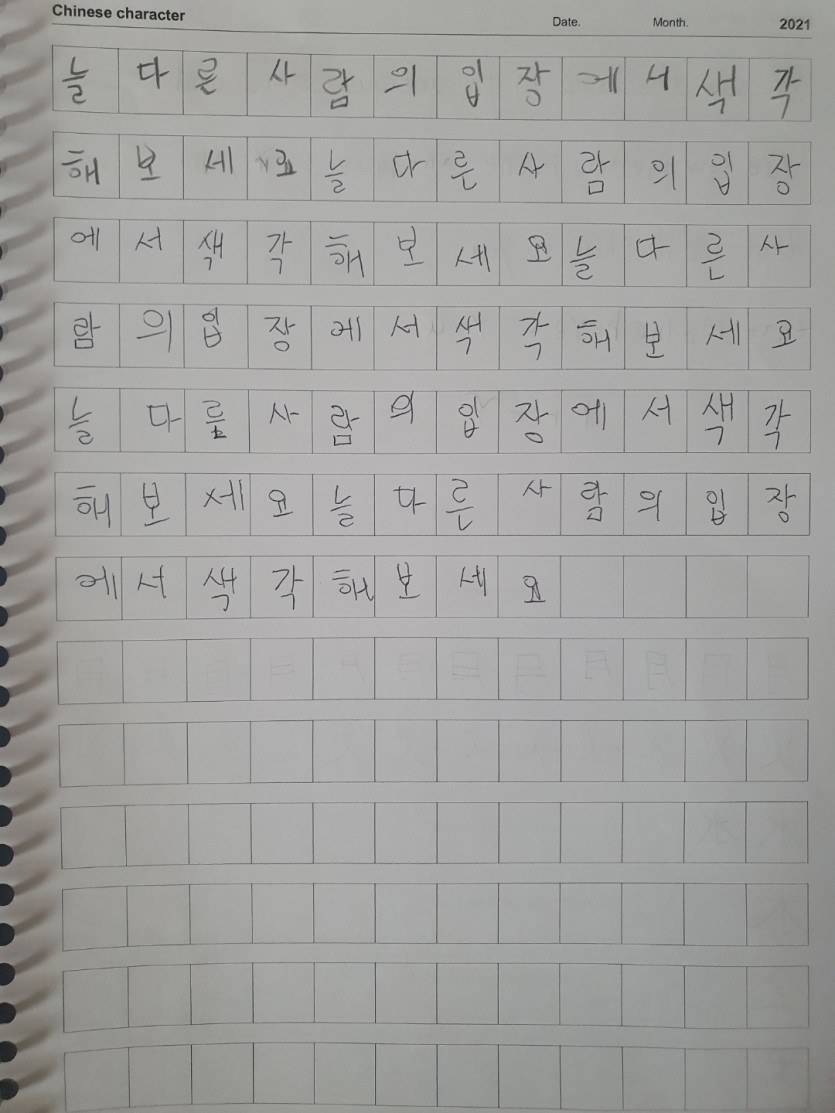 Chinese character Date. Month. 2021
늘 다른 사 람 의 입 장 에 서 색 각
해 보 세 요 늘 다 른 사 람 의 입 장
에 서 색 각 해 보 세 요 늘 다 른 사
람 의 입 장 에 서 색 각 해 보 세 요
늘 다 른 사 람 의 입 장 에 서 색 각
해 보 세 요 늘 다 른 사 람 의 입 장
에 서 색 각 해 보 세 요